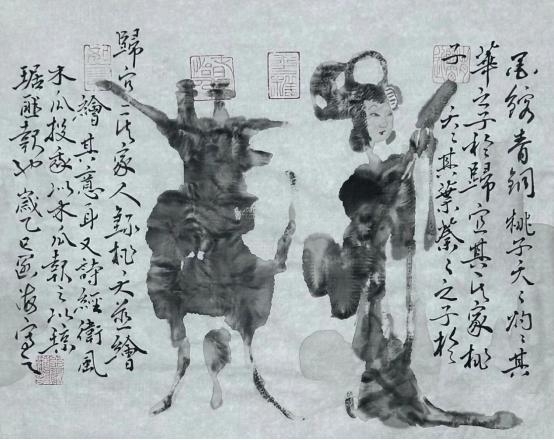 青銅桃子夭々灼々其
華之子於歸宜其家桃
子夭々其葉蓁々之子於
歸宜其家人錄桃夭並繪
繪其意耳又詩經衛風
木瓜投我以木瓜報之以瓊
琚匪報也歲乙巳海寫之